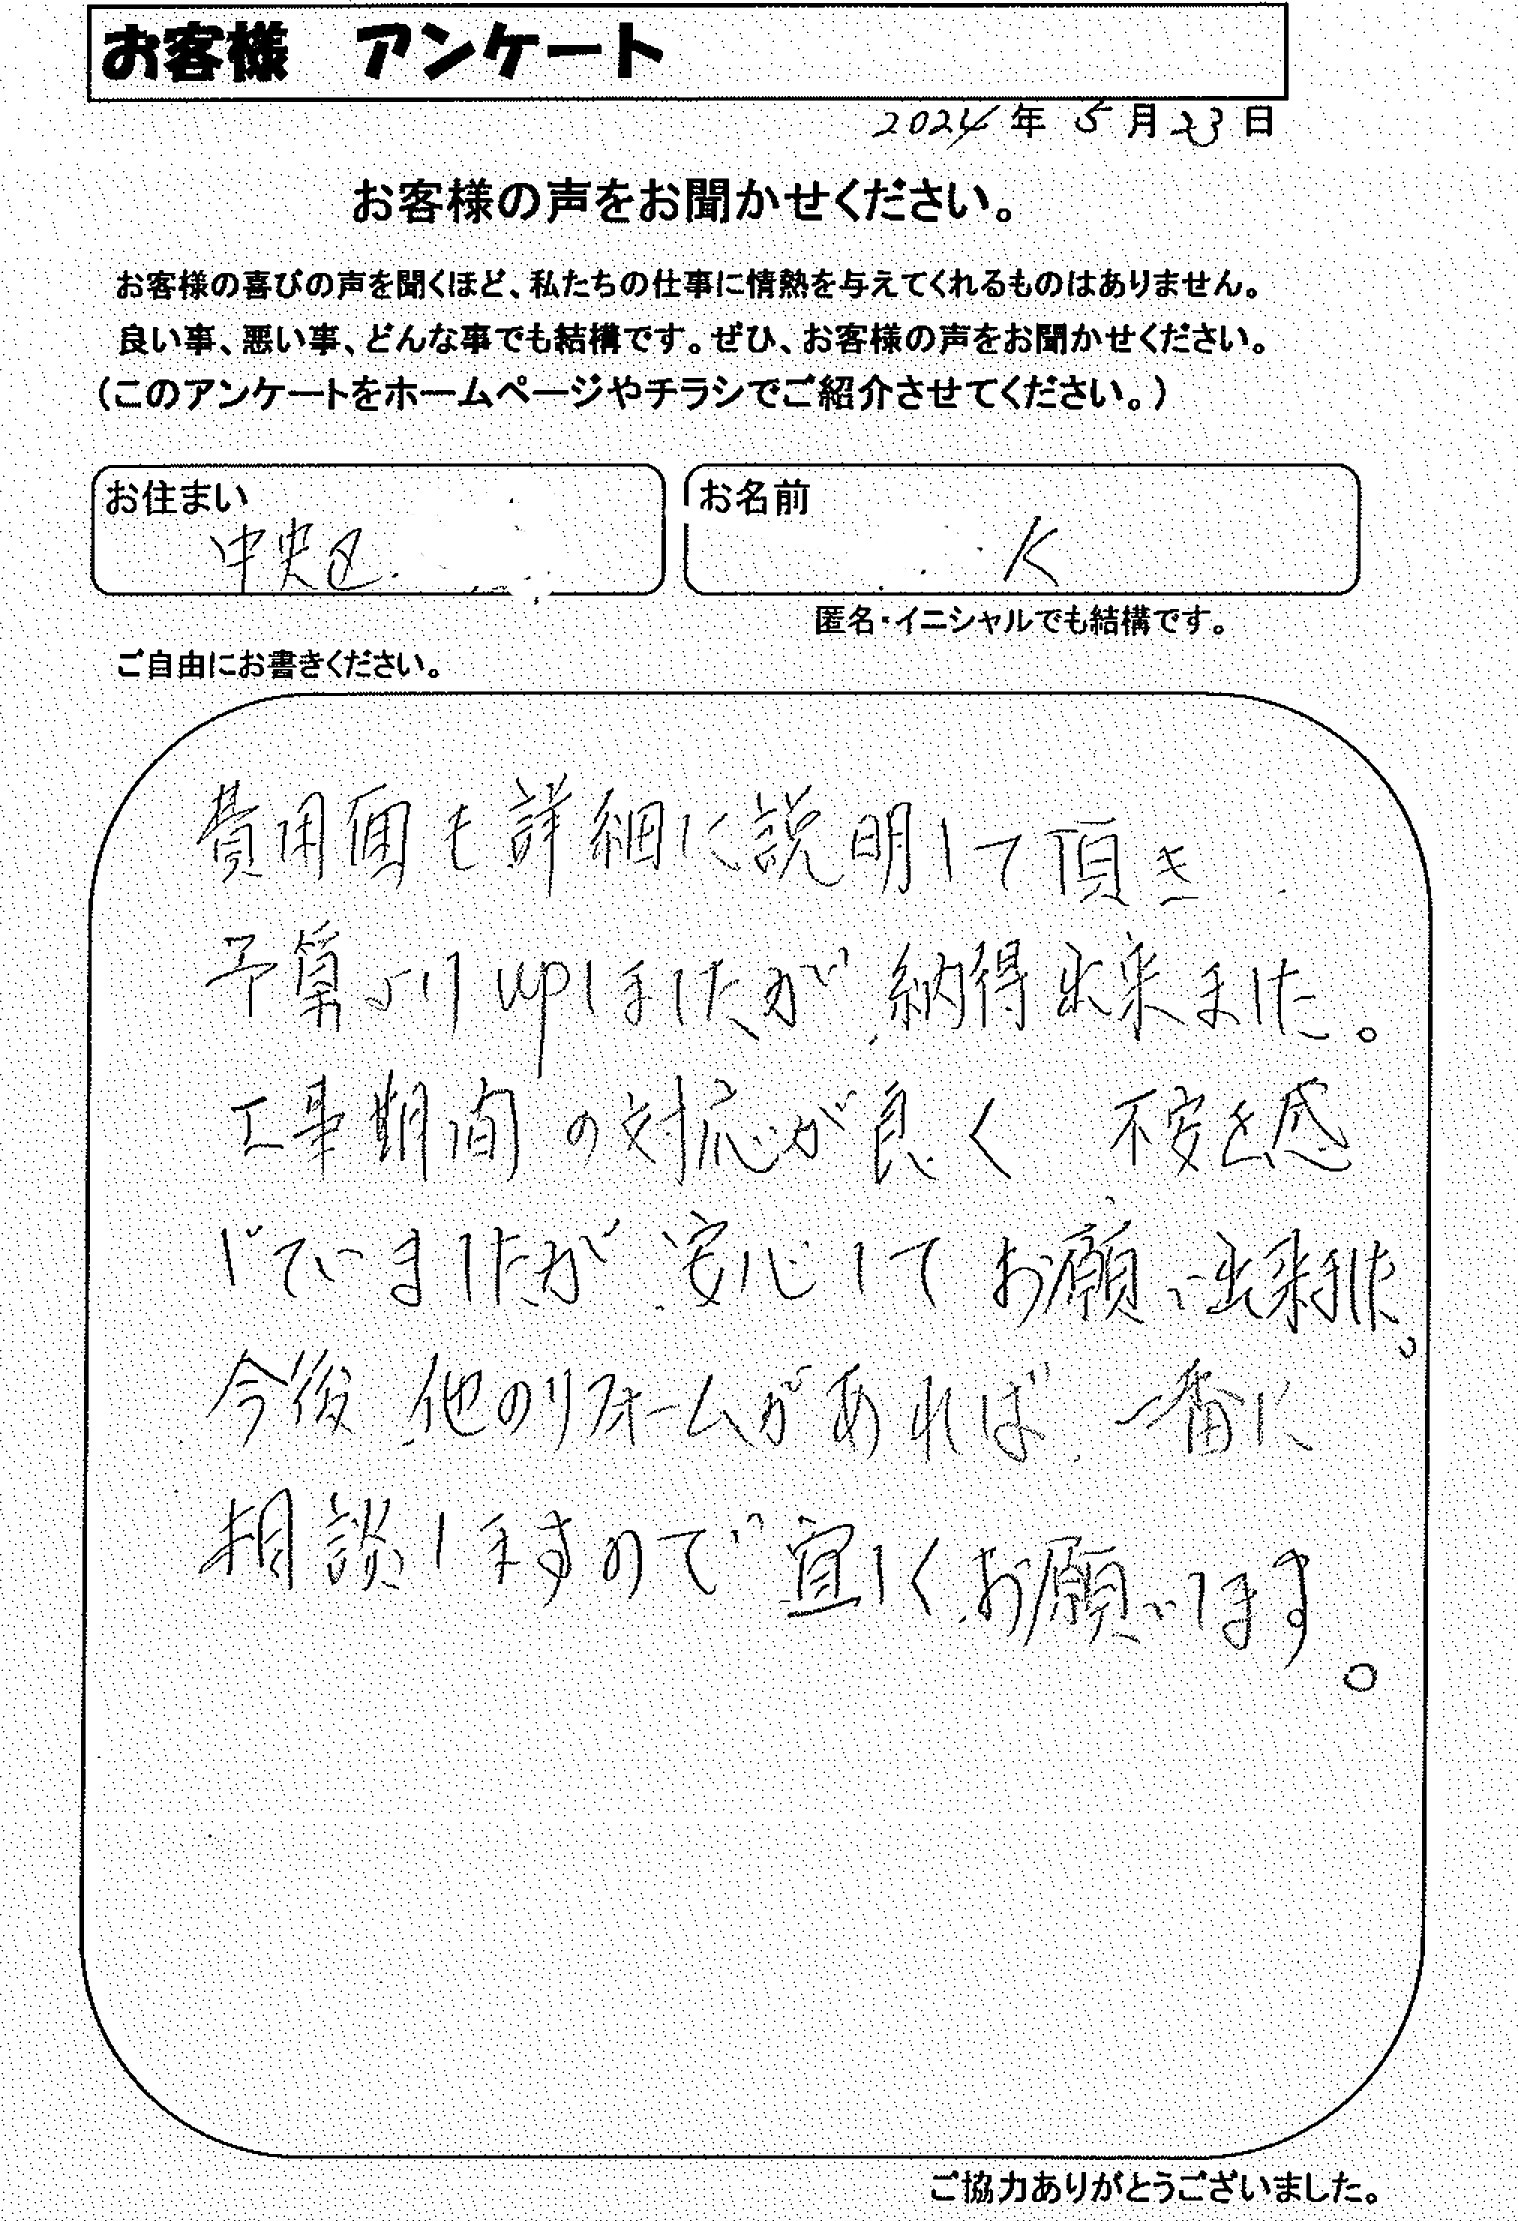 お客様　アンケート
2024年 5月 23日
お客様の声をお聞かせください。
お客様の喜びの声を聞くほど、私たちの仕事に情熱を与えてくれるものはありません。
良い事、悪い事、どんな事でも結構です。ぜひ、お客様の声をお聞かせください。
(このアンケートをホームページやチラシでご紹介させてください。)
お住まい
中央区
お名前
K
匿名・イニシャルでも結構です。
ご自由にお書きください。
費用面も詳細に説明して頂き
予算よりupしましたが、納得出来ました。
工事期間の対応が良く 不安を感
じていましたが、安心してお願い出来ました。
今後、他のリフォームがあれば、一番に
相談しますので宜しくお願いします。
ご協力ありがとうございました。